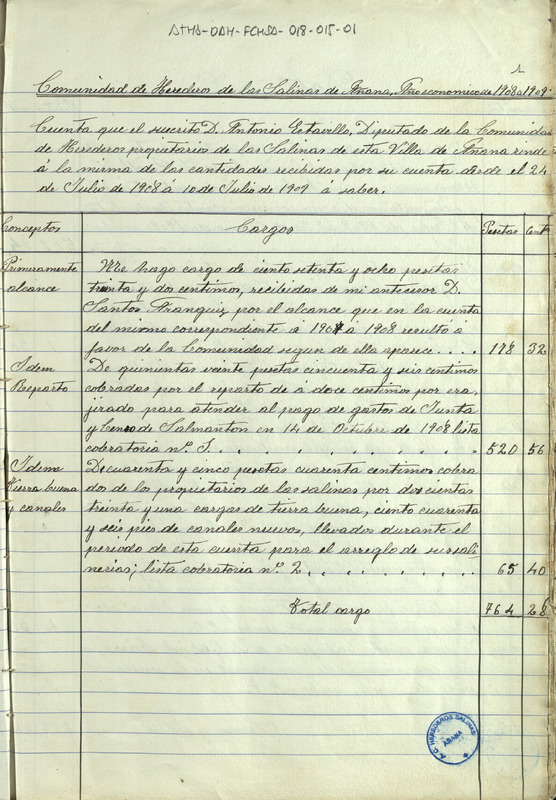 ATHA-DAH-FCHSA-018-015-01
1
Comunidad de Herederos de las Salinas de Añana, Año economico de 1908 a 1909.
Cuenta que el suscrito D. Antonio Estavillo, Diputado de la Comunidad
de Herederos propietarios de las Salinas de esta Villa de Añana rinde
á la misma de las cantidades recibidas por su cuenta desde el 24
de Julio de 1908 á 10 de Julio de 1909 á saber.
Conceptos Cargos Pesetas Cent
Primeramente Me hago cargo de ciento setenta y ocho pesetas
alcance treinta y dos centimos, recibidas de mi antecesor D.
Santos Aranguiz, por el alcance que en la cuenta
del mismo correspondiente á 1907 á 1908 resultó á
favor de la Comunidad segun de ella aparece.... 178 32
Idem De quinientas veinte pesetas cincuenta y seis centimos
Reparto cobradas por el reparto de á doce centimos por era,
jirado para atender al pago de gastos de Junta
y Censo de Salmanton en 14 de Octubre de 1908 lista
cobratoria nº 1. . . . . . . . . 520 56
Idem De cuarenta y cinco pesetas cuarenta centimos cobra
tierra buena dos de los propietarios de las salinas por doscientas
y canales treinta y una cargas de tierra buena, ciento cuarenta
y seis pies de canales nuevos, llevados durante el
periodo de esta cuenta para el arreglo de sus sali
nerias; lista cobratoria nº 2 . . . . . . . 65 40
Total cargo 764 28
A.C. HEREDEROS SALINAS
AÑANA